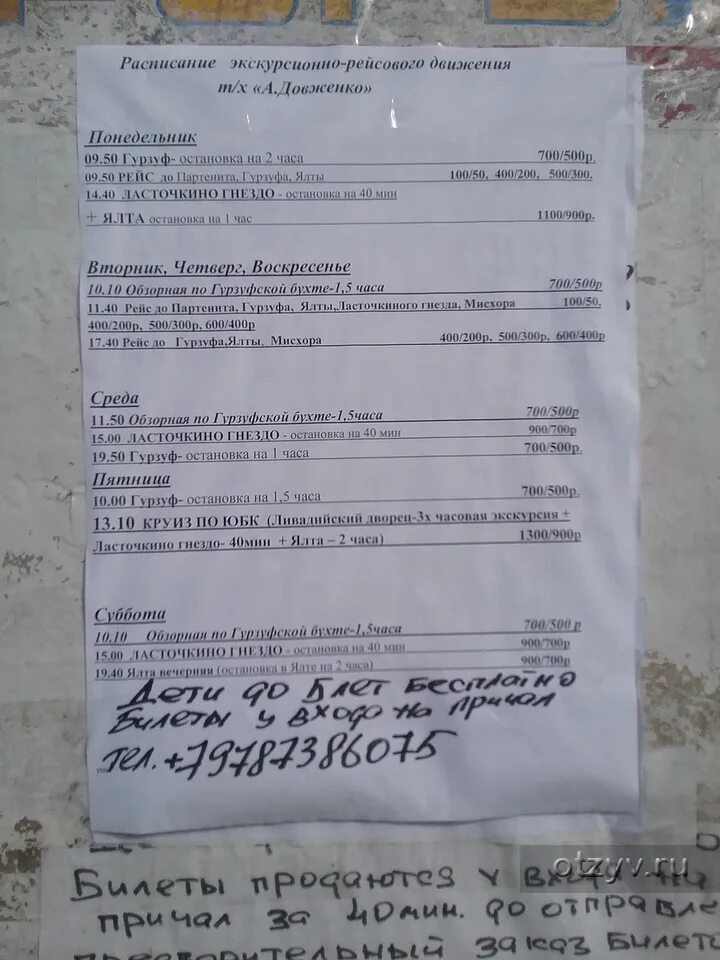 Расписание экскурсионно-рейсового движения
т/х «А.Довженко»
Понедельник
09.50 Гурзуф- остановка на 2 часа 700/500р.
09.50 РЕЙС до Партенита, Гурзуфа, Ялты 100/50, 400/200, 500/300.
14.40 ЛАСТОЧКИНО ГНЕЗДО - остановка на 40 мин
+ ЯЛТА остановка на 1 час 1100/900р.
Вторник, Четверг, Воскресенье
10.10 Обзорная по Гурзуфской бухте-1,5 часа 700/500р
11.40 Рейс до Партенита, Гурзуфа, Ялты,Ласточкиного гнезда, Мисхора 100/50,
400/200р, 500/300р, 600/400р
17.40 Рейс до Гурзуфа,Ялты, Мисхора 400/200р, 500/300р, 600/400р
Среда
11.50 Обзорная по Гурзуфской бухте-1,5часа 700/500р
15.00 ЛАСТОЧКИНО ГНЕЗДО - остановка на 40 мин 900/700р
19.50 Гурзуф- остановка на 1 часа 700/500р.
Пятница
10.00 Гурзуф- остановка на 1,5 часа 700/500р.
13.10 КРУИЗ ПО ЮБК (Ливадийский дворец-3х часовая экскурсия +
Ласточкино гнездо- 40мин + Ялта – 2 часа) 1300/900р
Суббота
10.10 Обзорная по Гурзуфской бухте-1,5часа 700/500 р
15.00 ЛАСТОЧКИНО ГНЕЗДО - остановка на 40 мин 900/700р
19.40 Ялта вечерняя (остановка в Ялте на 2 часа) 900/700р
Дети до 5 лет бесплатно
Билеты у входа на причал
тел. +79787386075
otzyv.ru
Билеты продаются у входа на
причал за 40мин. до отправле
предворительный заказ билето